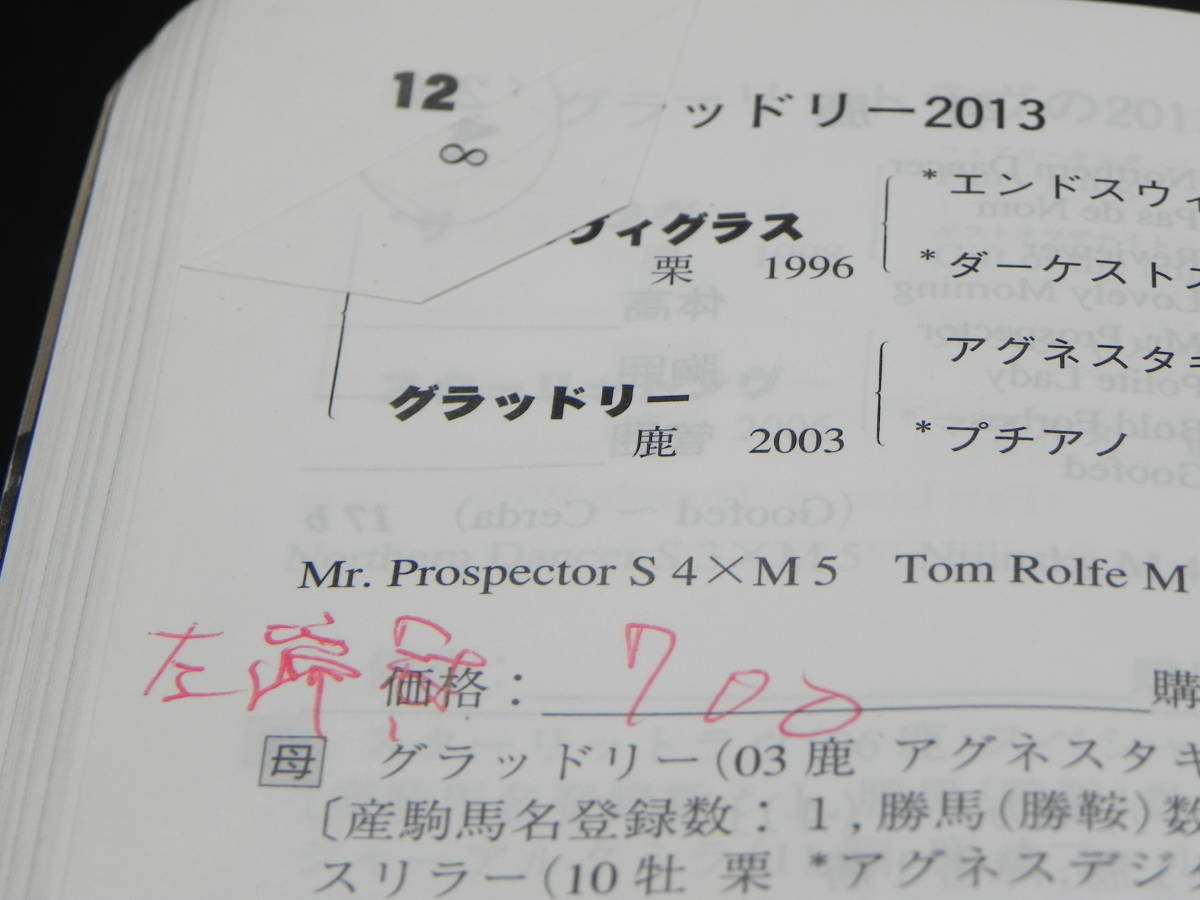 12 ッドリー2013
∞
*エンドスウィ
ィグラス
栗 1996
*ダーケスト
アグネスタキ
グラッドリー
鹿 2003
*プチアノ
Mr. Prospector S 4×M 5 Tom Rolfe M
左
価格： 700 購
母 グラッドリー(03 鹿 アグネスタキ
〔産駒馬名登録数：1，勝馬(勝鞍)数
スリラー(10 牡 栗 *アグネスデジ